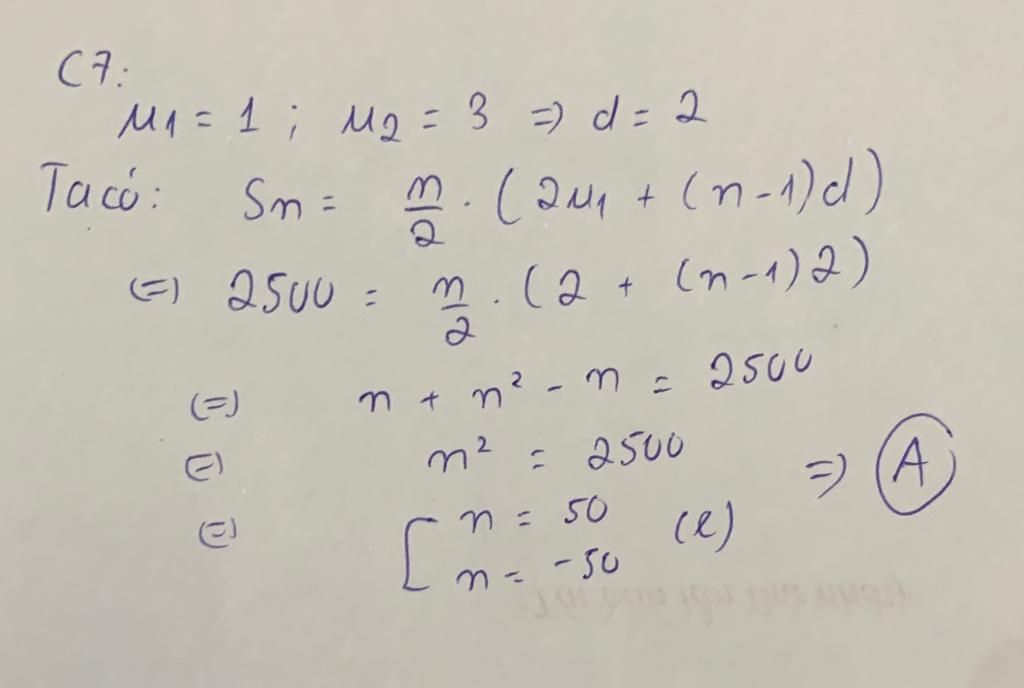 C7:
u₁ = 1 ; u₂ = 3 => d = 2
Ta có: Sn = n/2 . (2u₁ + (n-1)d)
(=) 2500 = n/2 . (2 + (n-1)2)
(=) n + n² - n = 2500
(=) n² = 2500 => A
(=) [ n = 50
n = -50 (l)